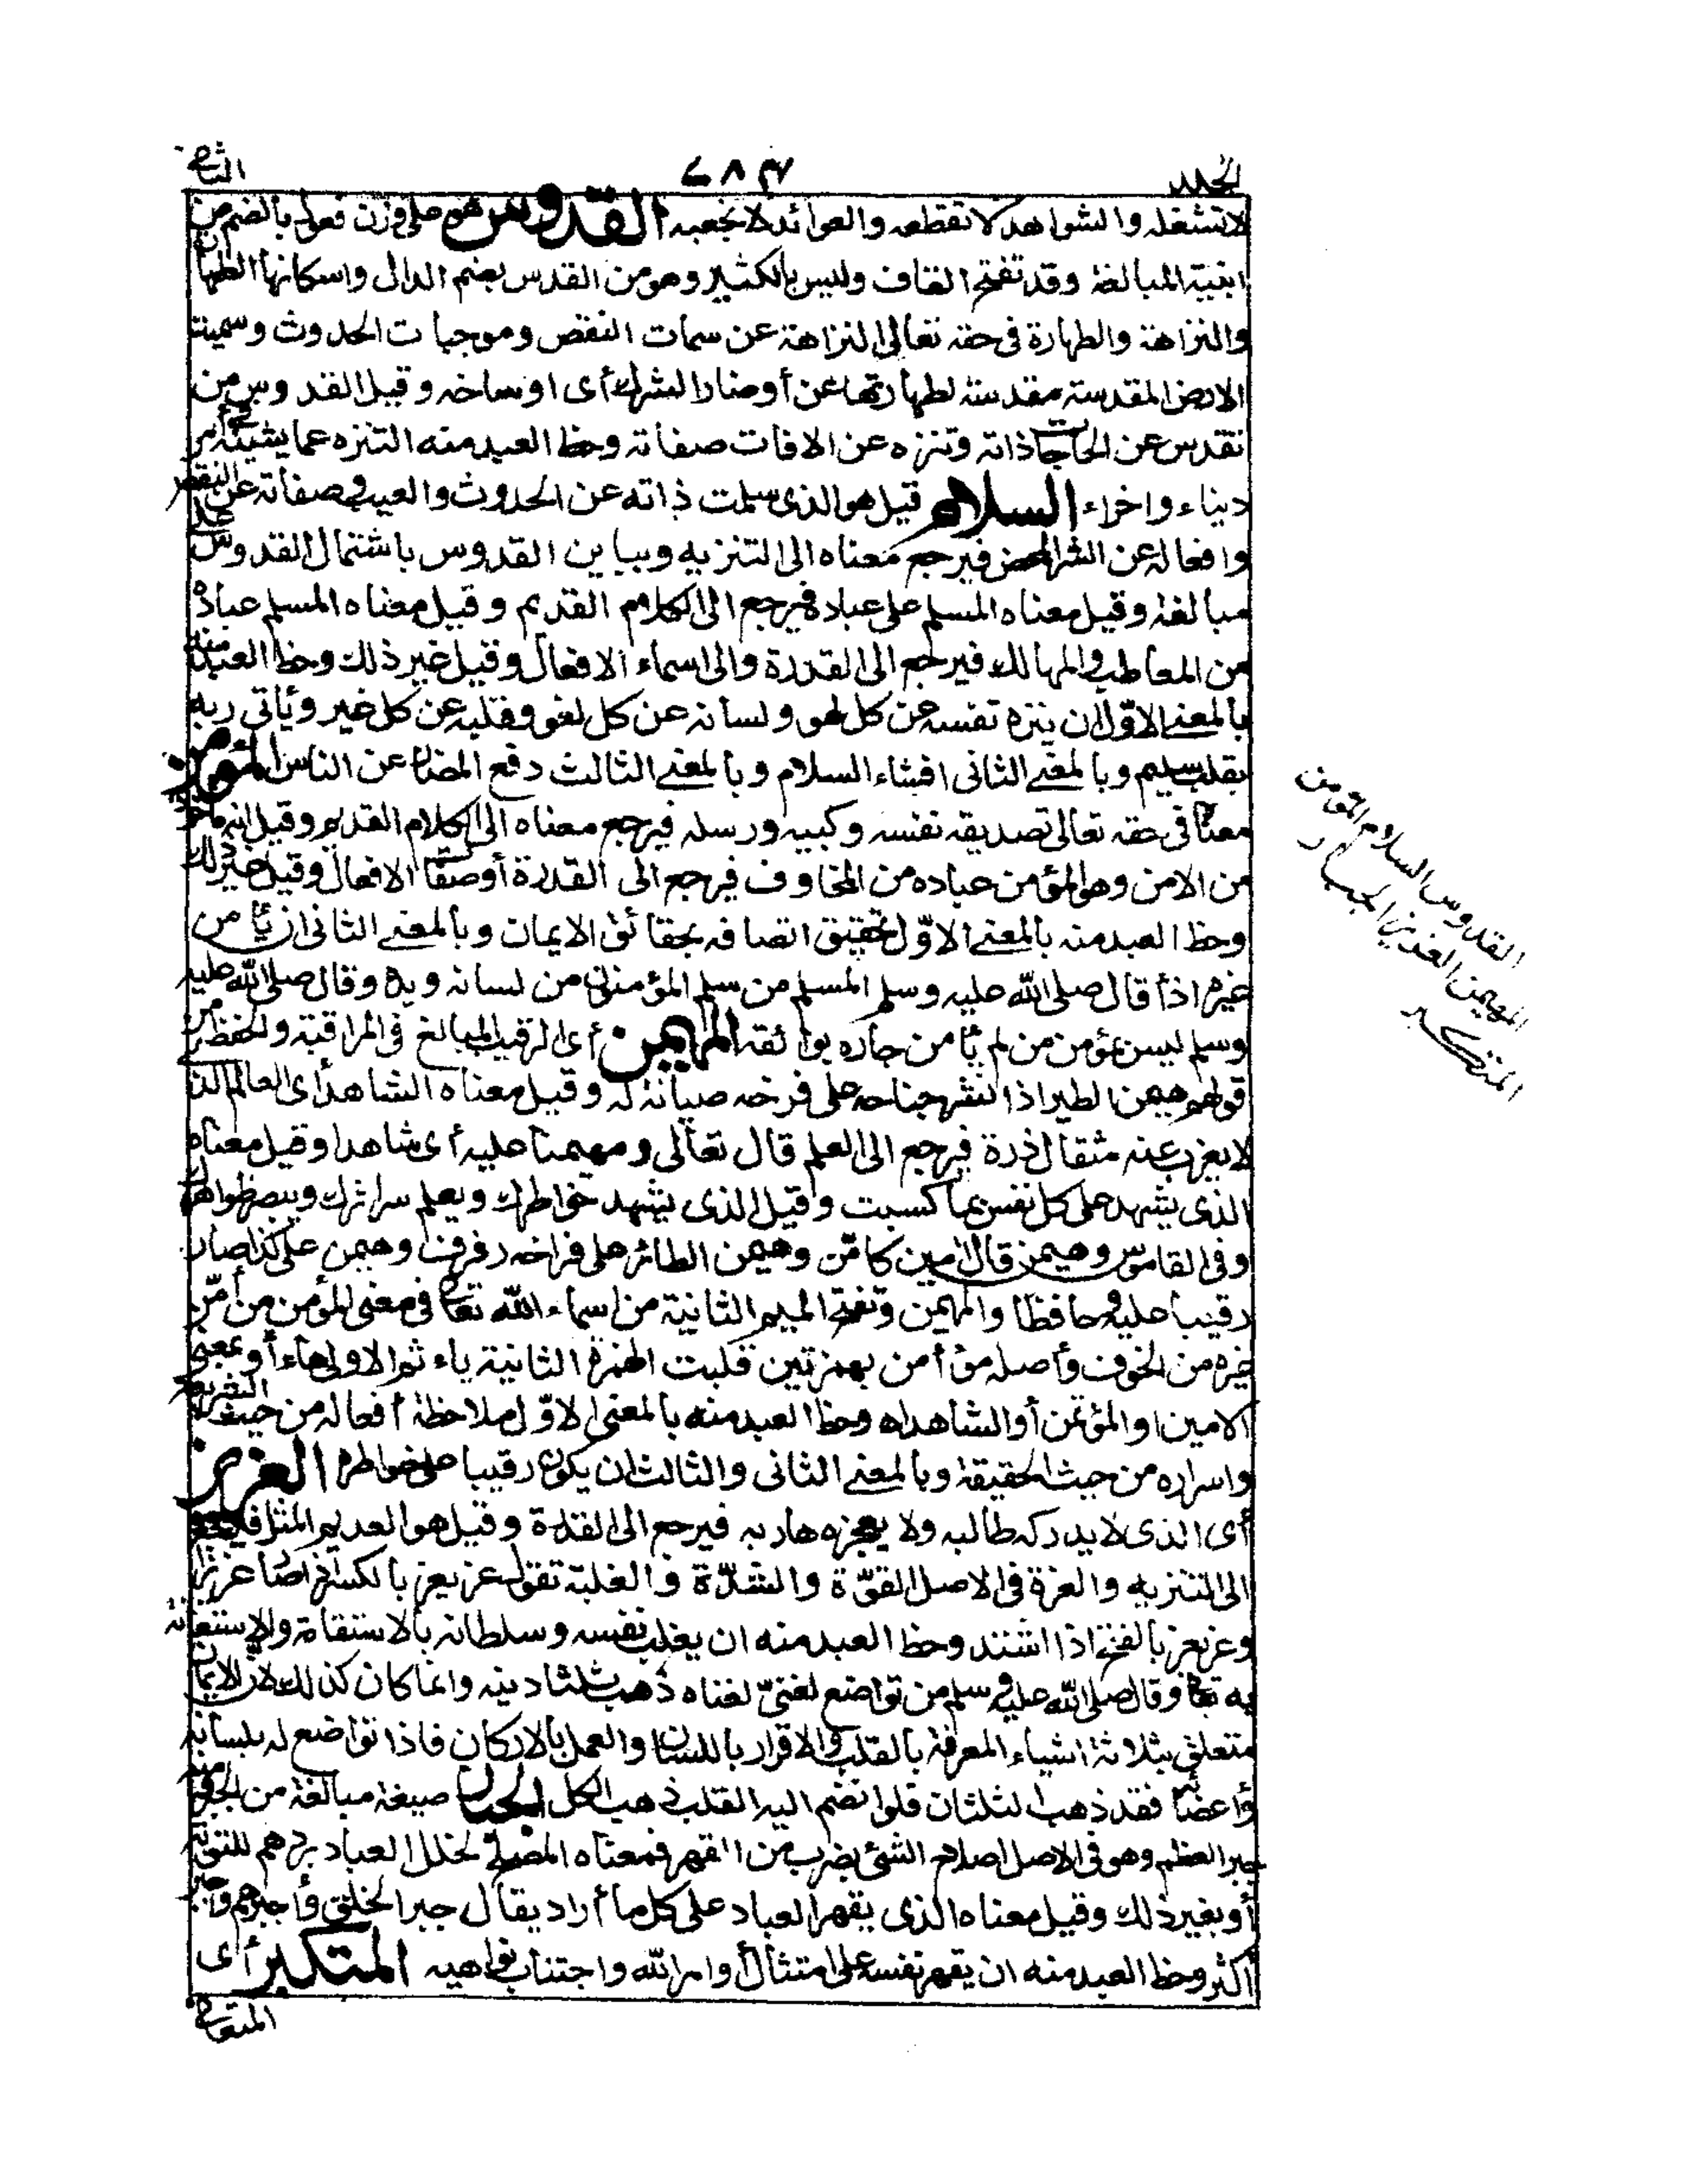 الجلد ٤٨٣ الثاني
لا تشغله والشواهد لا تقطعه والعوائد لا تحجبه القدوس هو على وزن فعول بالضم من
ابنية المبالغة وقد تفتح القاف وليس بالكثير وهو من القدس بضم الدال واسكانها الطهارة
والنزاهة والطهارة في حقه تعالى النزاهة عن سمات النقص وموجبات الحدوث وسميت
الارض المقدسة مقدسة لطهارتها عن أوضار الشرك أى اوساخه وقيل القدوس من
تقدس عن الحاجات ذاته وتنزه عن الافات صفاته وحظ العبد منه التنزه عما يشينه في أمر
ديناء واخراء السلام قيل هو الذى سلمت ذاته عن الحدوث والعيب وصفاته عن النقص
وافعاله عن الشر المحض فيرجع معناه الى التنزيه ويباين القدوس باشتمال القدوس على
مبالغة وقيل معناه المسلم على عباده فيرجع الى الكلام القديم وقيل معناه المسلم عباده
من المعاطب والمهالك فيرجع الى القدرة والى اسماء الافعال وقيل غير ذلك وحظ العبد منه
بالمعنى الاوّل ان ينزه نفسه عن كل لهو ولسانه عن كل لغو وقلبه عن كل غير ويأتى ربه
بقلب سليم وبالمعنى الثانى افشاء السلام وبالمعنى الثالث دفع المضار عن الناس المؤمن
معناه في حقه تعالى تصديقه نفسه وكتبه ورسله فيرجع معناه الى الكلام القديم وقيل انه مأخوذ
من الامن وهو المؤمن عباده من المخاوف فيرجع الى القدرة أو صفات الافعال وقيل غير ذلك
وحظ العبد منه بالمعنى الاوّل تحقيق اتصافه بحقائق الايمان وبالمعنى الثانى ان يأمن
غيره اذا قال صلى الله عليه وسلم المسلم من سلم المؤمنون من لسانه ويده وقال صلى الله عليه
وسلم ليس بمؤمن من لم يأمن جاره بوائقه المهيمن أى الرقيب المبالغ في المراقبة والحفظ من
قولهم هيمن الطير اذا نشر جناحه على فرخه صيانة له وقيل معناه الشاهد أى العالم الذى
لا يعزب عنه مثقال ذرة فيرجع الى العلم قال تعالى ومهيمنا عليه أى شاهدا وقيل معناه
الذى يشهد على كل نفس بما كسبت وقيل الذى يشهد خواطرك ويعلم سرائرك ويبصر ظواهرك
وفى القاموس وهيمن قال امين كأمّن وهيمن الطائر على فراخه رفرف وهيمن على كذا صار
رقيبا عليه وحافظا والمهيمن وتفتح الميم الثانية من اسماء الله تعالى في معنى المؤمن من أمّن
غيره من الخوف وأصله مؤأمن بهمزتين قلبت الهمزة الثانية ياء ثم الاولى هاء أو بمعنى
الامين او المؤتمن أو الشاهد اه وحظ العبد منه بالمعنى الاوّل ملاحظة أفعاله من حيث الشريعة
واسراره من حيث الحقيقة وبالمعنى الثانى والثالث ان يكون رقيبا على خواطره العزيز
أى الذى لا يدركه طالبه ولا يعجزه هاربه فيرجع الى القدرة وقيل هو العديم المثل فيرجع
الى التنزيه والعزة فى الاصل القوّة والشدّة والغلبة تقول عز يعز بالكسر اذا صار عزيزا
وعز يعز بالفتح اذا اشتد وحظ العبد منه ان يغلب نفسه وسلطانه بالاستقامة والاستعانة
به تعالى وقال صلى الله عليه وسلم من تواضع لغنىّ لغناه ذهب ثلثا دينه وانما كان كذلك لان الايمان
متعلق بثلاثة اشياء المعرفة بالقلب والاقرار باللسان والعمل بالاركان فاذا تواضع له بلسانه
وأعضائه فقد ذهب الثلثان فلو انضم اليه القلب ذهب الكل الجبار صيغة مبالغة من الجبر منه
جبر العظم وهو فى الاصل اصلاح الشئ بضرب من القهر فمعناه المصلح لخلل العباد بردهم للتوبة
أو بغير ذلك وقيل معناه الذى يقهر العباد على كل ما أراد يقال جبر الخلق وأجبرهم وأجبر
أكثر وحظ العبد منه ان يقهر نفسه على امتثال أوامر الله واجتناب نواهيه المتكبر أى
المتعالى
القدوس السلام المؤمن
المهيمن العزيز الجبار
المتكبر